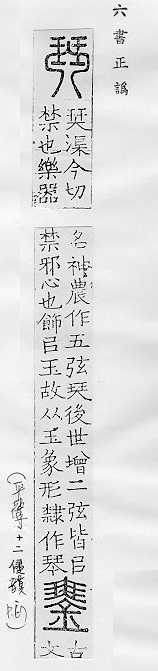 六書正譌
珡
珡渠今切
禁也樂器
名神農作五弦珡後世增二弦皆㠯
禁邪心也飾㠯玉故从玉象形隸作琴
古
文
(平聲十二侵韻)